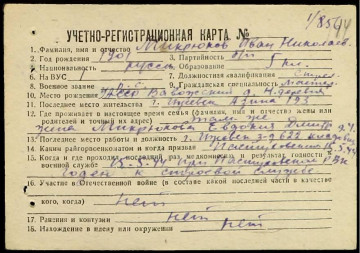 1/8594
УЧЕТНО-РЕГИСТРАЦИОННАЯ КАРТА №
1. Фамилия, имя и отчество Микрюков Иван Николаев.
2. Год рождения 1901 3. Партийность б/п
4. Национальность русск 5. Образование 5 кл.
6. На ВУС 1 7. Должностная квалификация стрел.
8. Военное звание 9. Гражданская специальность
10. Место рождения УАССР Вавожский
11. Последнее место жительства г. Ижевск Азина 193
12. Где проживают в настоящее время семья (фамилия, имя и отчество жены или
родителей и точный их адрес) там же
жена Микрюкова Евдокия
13. Последнее место работы и должность г. Ижевск з-д 622
14. Каким райгорвоенкоматом и когда призван Пастуховским
15. Когда и где проходил последний раз медкомиссию и результат годности к
военной службе 15.5.44 при Пастуховском РВК
годен к строевой службе
16. Участие в Отечественной войне (в составе какой последней части в качестве
кого, когда) нет
17. Ранения и контузии нет
18. Нахождение в плену или окружении нет